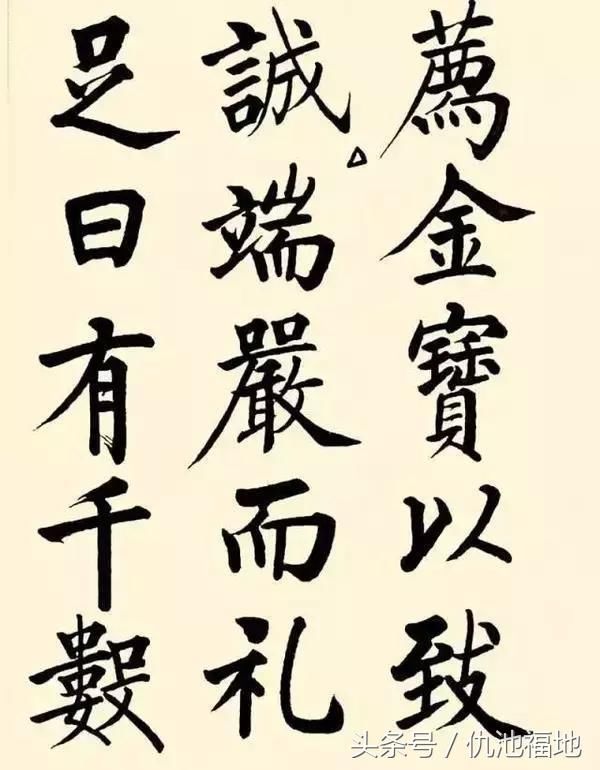 薦金寶以致
誠端嚴而礼
足日有千數
头条号／仇池福地